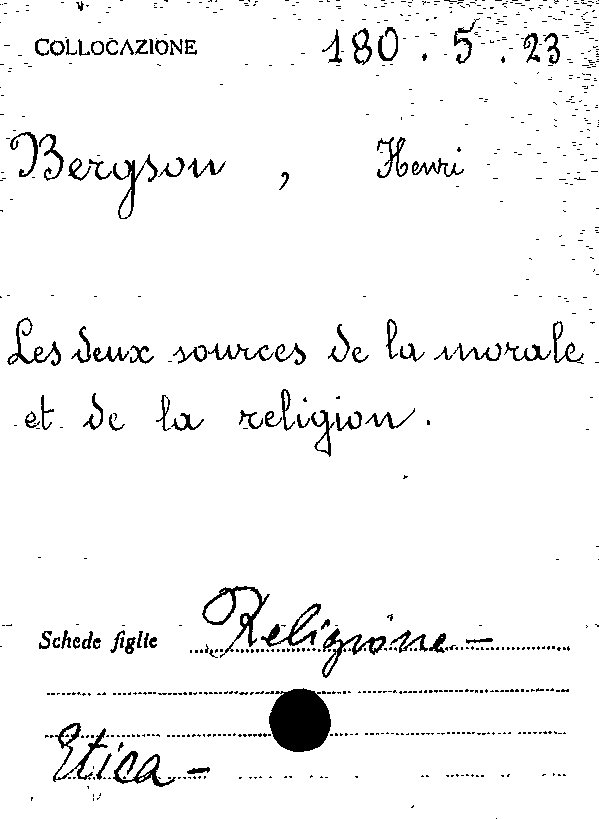 COLLOCAZIONE 180.5.23
Bergson, Henri
Les deux sources de la morale
et de la religion.
Schede figlie Religione-
Etica-